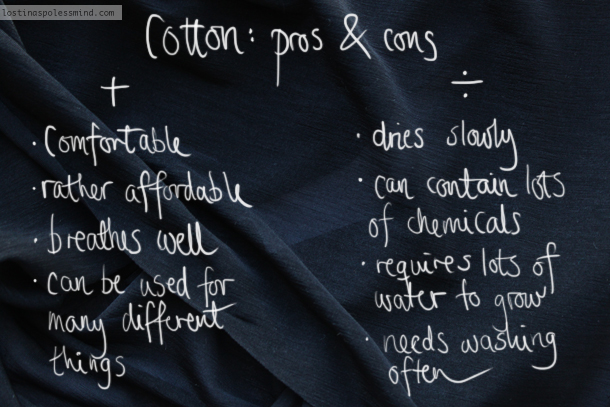 lostinaspolessmind.com
Cotton: pros & cons
+
÷
· Comfortable
· rather affordable
· breathes well
· can be used for
many different
things
· dries slowly
· can contain lots
of chemicals
· requires lots of
water to grow
· needs washing
often